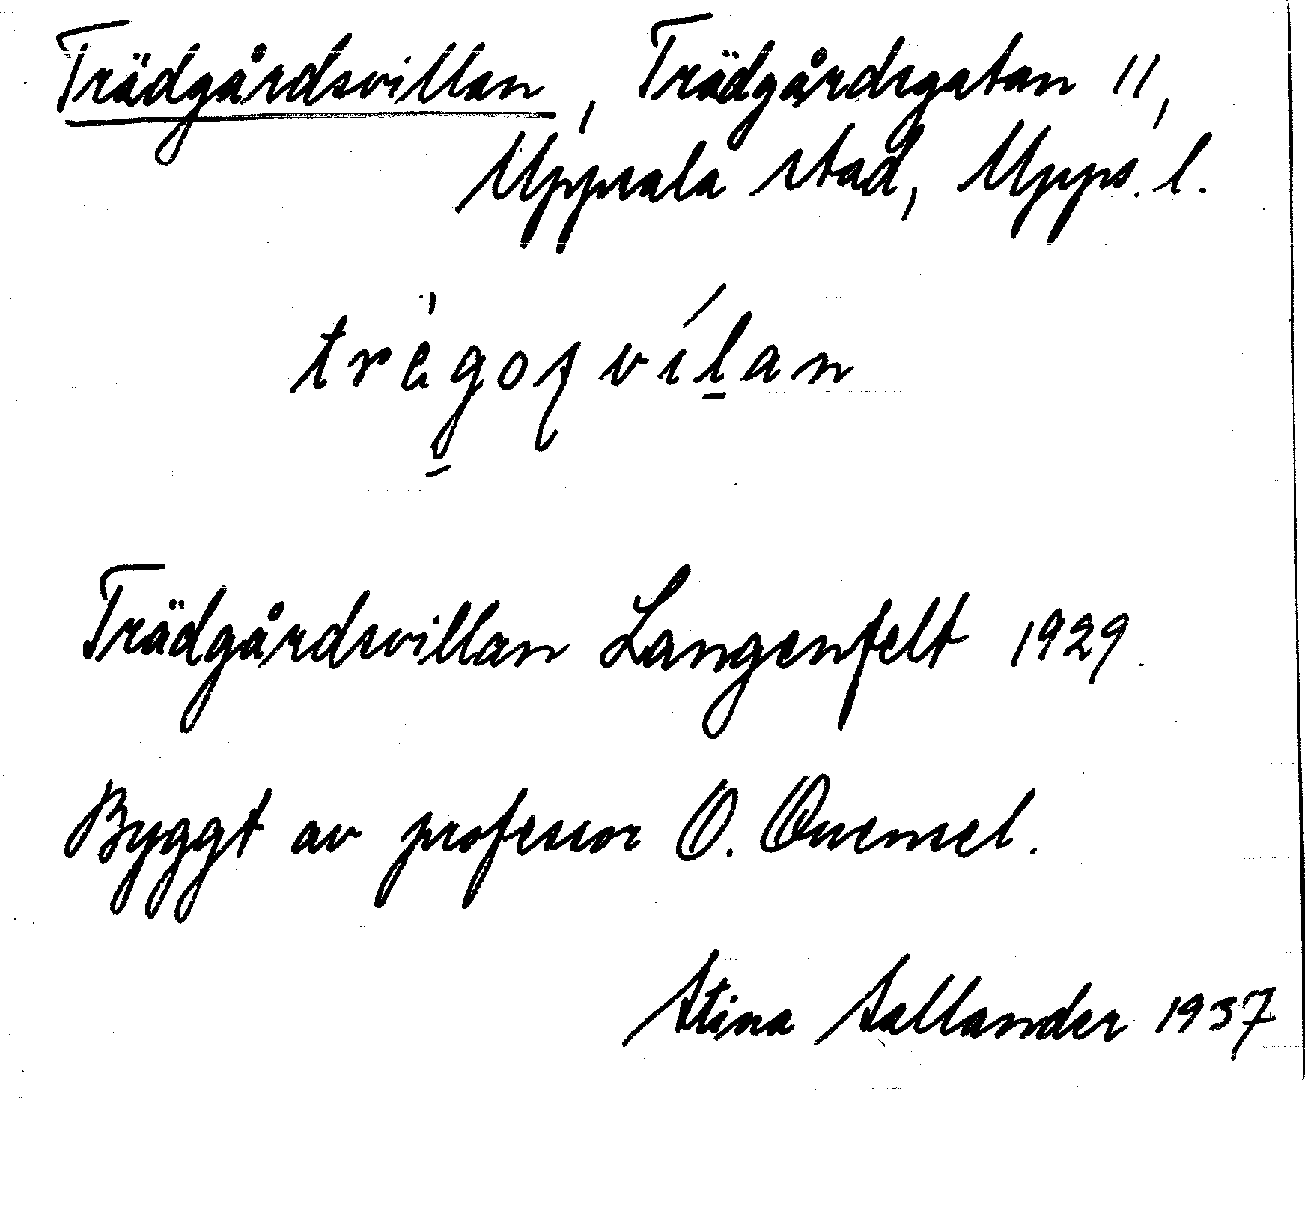 Trädgårdsvillan, Trädgårdsgatan 11,
Uppsala stad, Upps. l.
Trädgårdsvillan Langenfelt 1929.
Byggt av professor O. Quensel.
Stina Sallander 1937